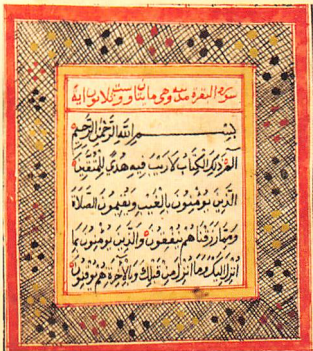 سورة البقرة مدنية وهي مائتان وست وثلاثون اية
بسم الله الرحمن الرحيم
الم ذلك الكتاب لا ريب فيه هدى للمتقين
الذين يومنون بالغيب ويقيمون الصلاة
ومما رزقناهم ينفقون والذين يومنون بما
انزل اليك وما انزل من قبلك وبالاخرة هم يوقنون